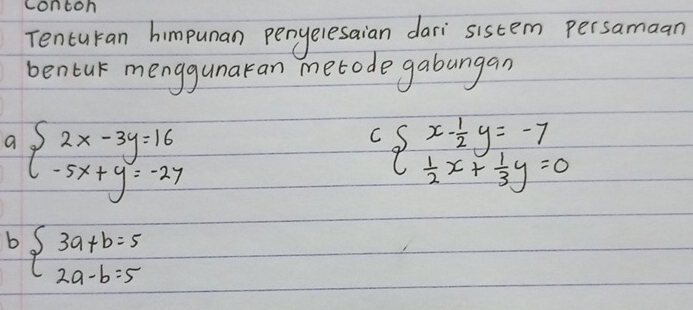 Contoh
Tentukan himpunan penyelesaian dari sistem persamaan
bentuk menggunakan metode gabungan
a { 2x - 3y = 16
-5x + y = -27
c { x - 1/2 y = -7
1/2 x + 1/3 y = 0
b { 3a + b = 5
2a - b = 5